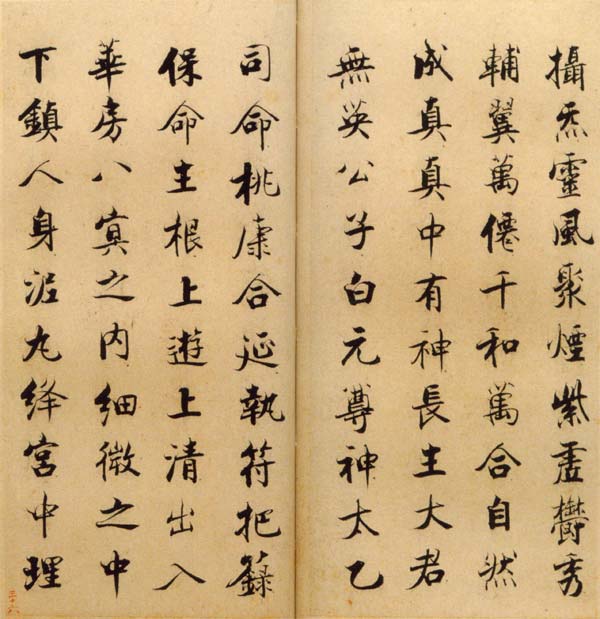 攝炁靈風聚煙紫虛欝秀
輔翼萬僊千和萬合自然
成真真中有神長生大君
無英公子白元尊神太乙
司命桃康合延執符把籙
保命生根上遊上清出入
華房八㝠之内細微之中
下鎮人身泥丸絳宮中理
三十八